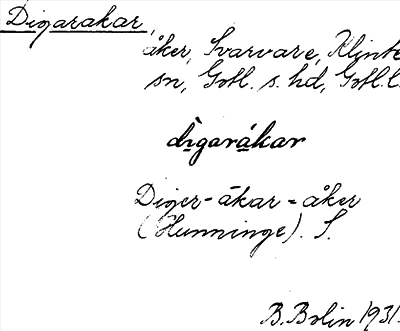 Digarakar,
åker, Svarvare, Klinte
sn, Gotl. s. hd, Gotl. l.
dìgarákar
Diger-åkar = åker
(Hunninge). S.
B. Bolin 1931.